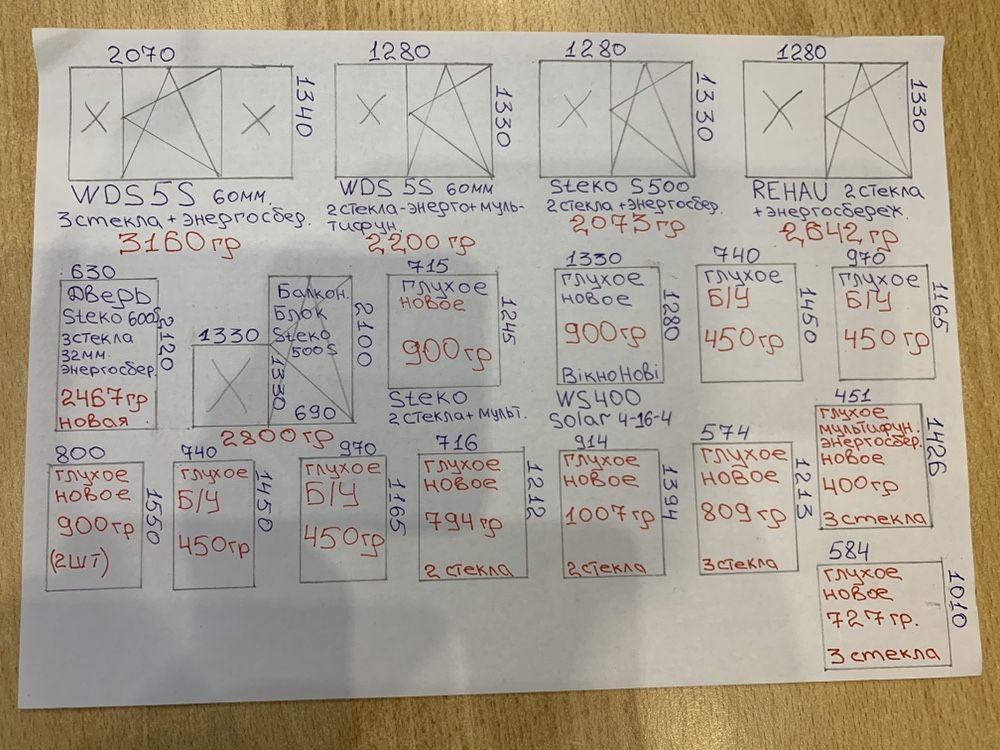 2070
1340
WDS 5S 60мм.
3 стекла + энергосбер.
3160 гр
1280
1330
WDS 5S 60мм
2 стекла - энерго + муль-
тифун.
2200 гр
1280
1330
Steko S500
2 стекла + энергосбер.
2073 гр
1280
1330
REHAU 2 стекла
+ энергосбереж.
2642 гр
630
2120
Дверь
Steko 600S
3 стекла
32мм.
энергосбер.
2467 гр
новая
1330
1330
Балкон.
Блок
Steko
500S
2100
690
2800 гр
715
1245
глухое
новое
900 гр
Steko
2 стекла + мульт.
1330
1280
глухое
новое
900 гр
Вікно Нові
WS400
Solar 4-16-4
740
1450
глухое
Б/У
450 гр
970
1165
глухое
Б/У
450 гр
800
1550
глухое
новое
900 гр
(2шт)
740
1450
глухое
Б/У
450 гр
970
1165
глухое
Б/У
450 гр
716
1212
глухое
новое
794 гр
2 стекла
914
1394
глухое
новое
1007 гр
2 стекла
574
1213
глухое
новое
809 гр
3 стекла
451
1426
глухое
мультифун.
энергосбер.
новое
400 гр
3 стекла
584
1010
глухое
новое
727 гр.
3 стекла